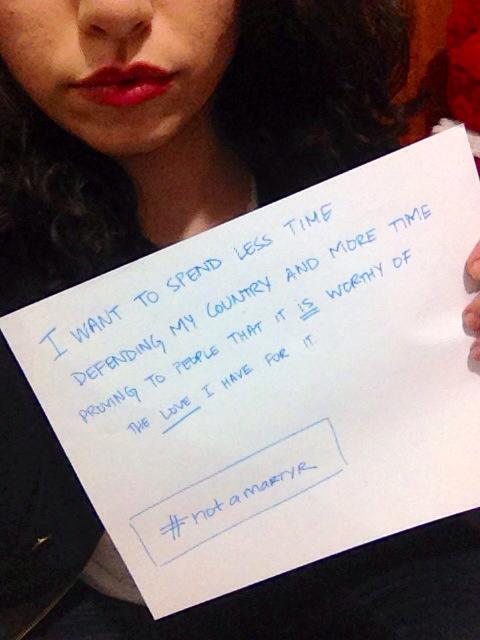 I WANT TO SPEND LESS TIME
DEFENDING MY COUNTRY AND MORE TIME
PROVING TO PEOPLE THAT IT IS WORTHY OF
THE LOVE I HAVE FOR IT
#notamartyr